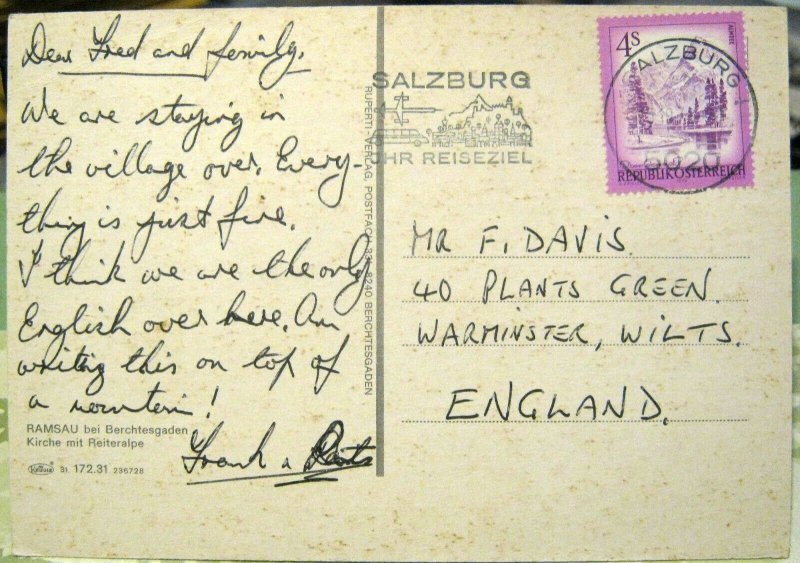 Dear Fred and family,
We are staying in
the village over. Every-
thing is just fine.
I think we are the only
English over here. Am
writing this on top of
a mountain!
Frank a
RAMSAU bei Berchtesgaden
Kirche mit Reiteralpe
31. 172.31 236728
RUPERTI-VERLAG, POSTFACH 8240 BERCHTESGADEN
SALZBURG
IHR REISEZIEL
4S
ALMSEE
SALZBURG
5020
REPUBLIK ÖSTERREICH
MR F. DAVIS.
40 PLANTS GREEN.
WARMINSTER, WILTS.
ENGLAND.